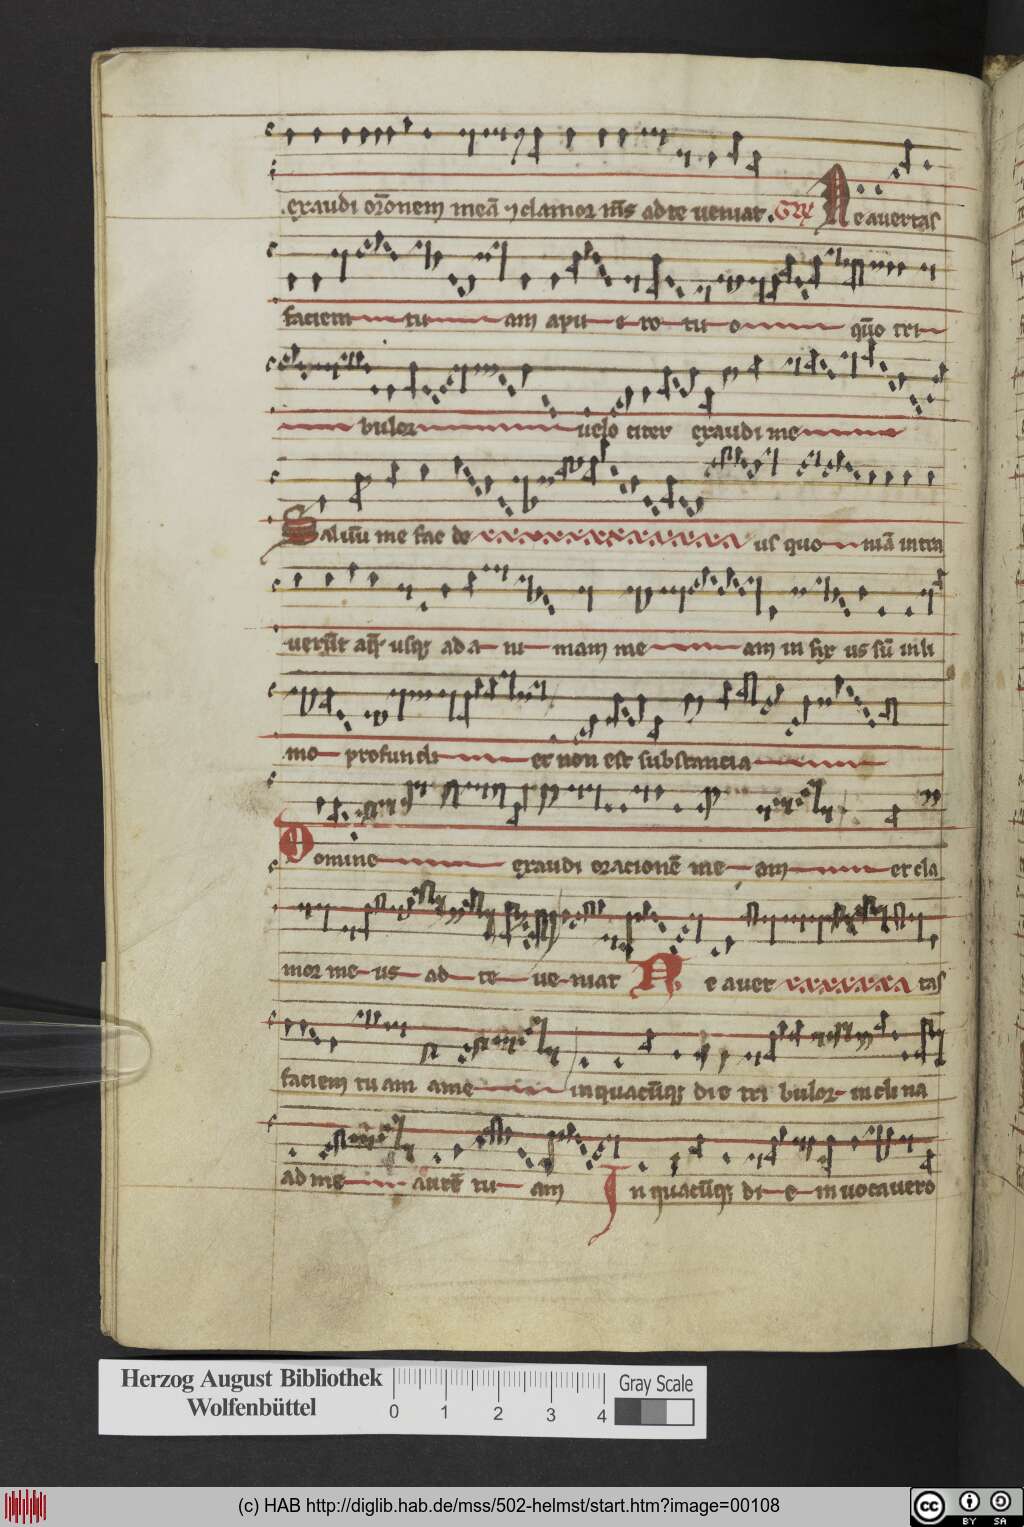 exaudi or̄onem meā ⁊ clamor m̄s ad te veniat. Gͬ Ne avertas
faciem tu am a pu e ro tu o qūo tri
bulor velo citer exaudi me
Salvū me fac de us quo niā intra
verūt aq̄ usq; ad a ni mam me am in fix us sū in li
mo profundi et non est substancia
Domine exaudi oracionē me am et cla
mor me us ad te ve niat Ne aver tas
faciem tu am a me in quacūq; di e tri bulor in cli na
ad me aurē tu am In quacūq; di e in vocavero
Herzog August Bibliothek
Wolfenbüttel
0 1 2 3 4
Gray Scale
(c) HAB http://diglib.hab.de/mss/502-helmst/start.htm?image=00108
cc BY SA